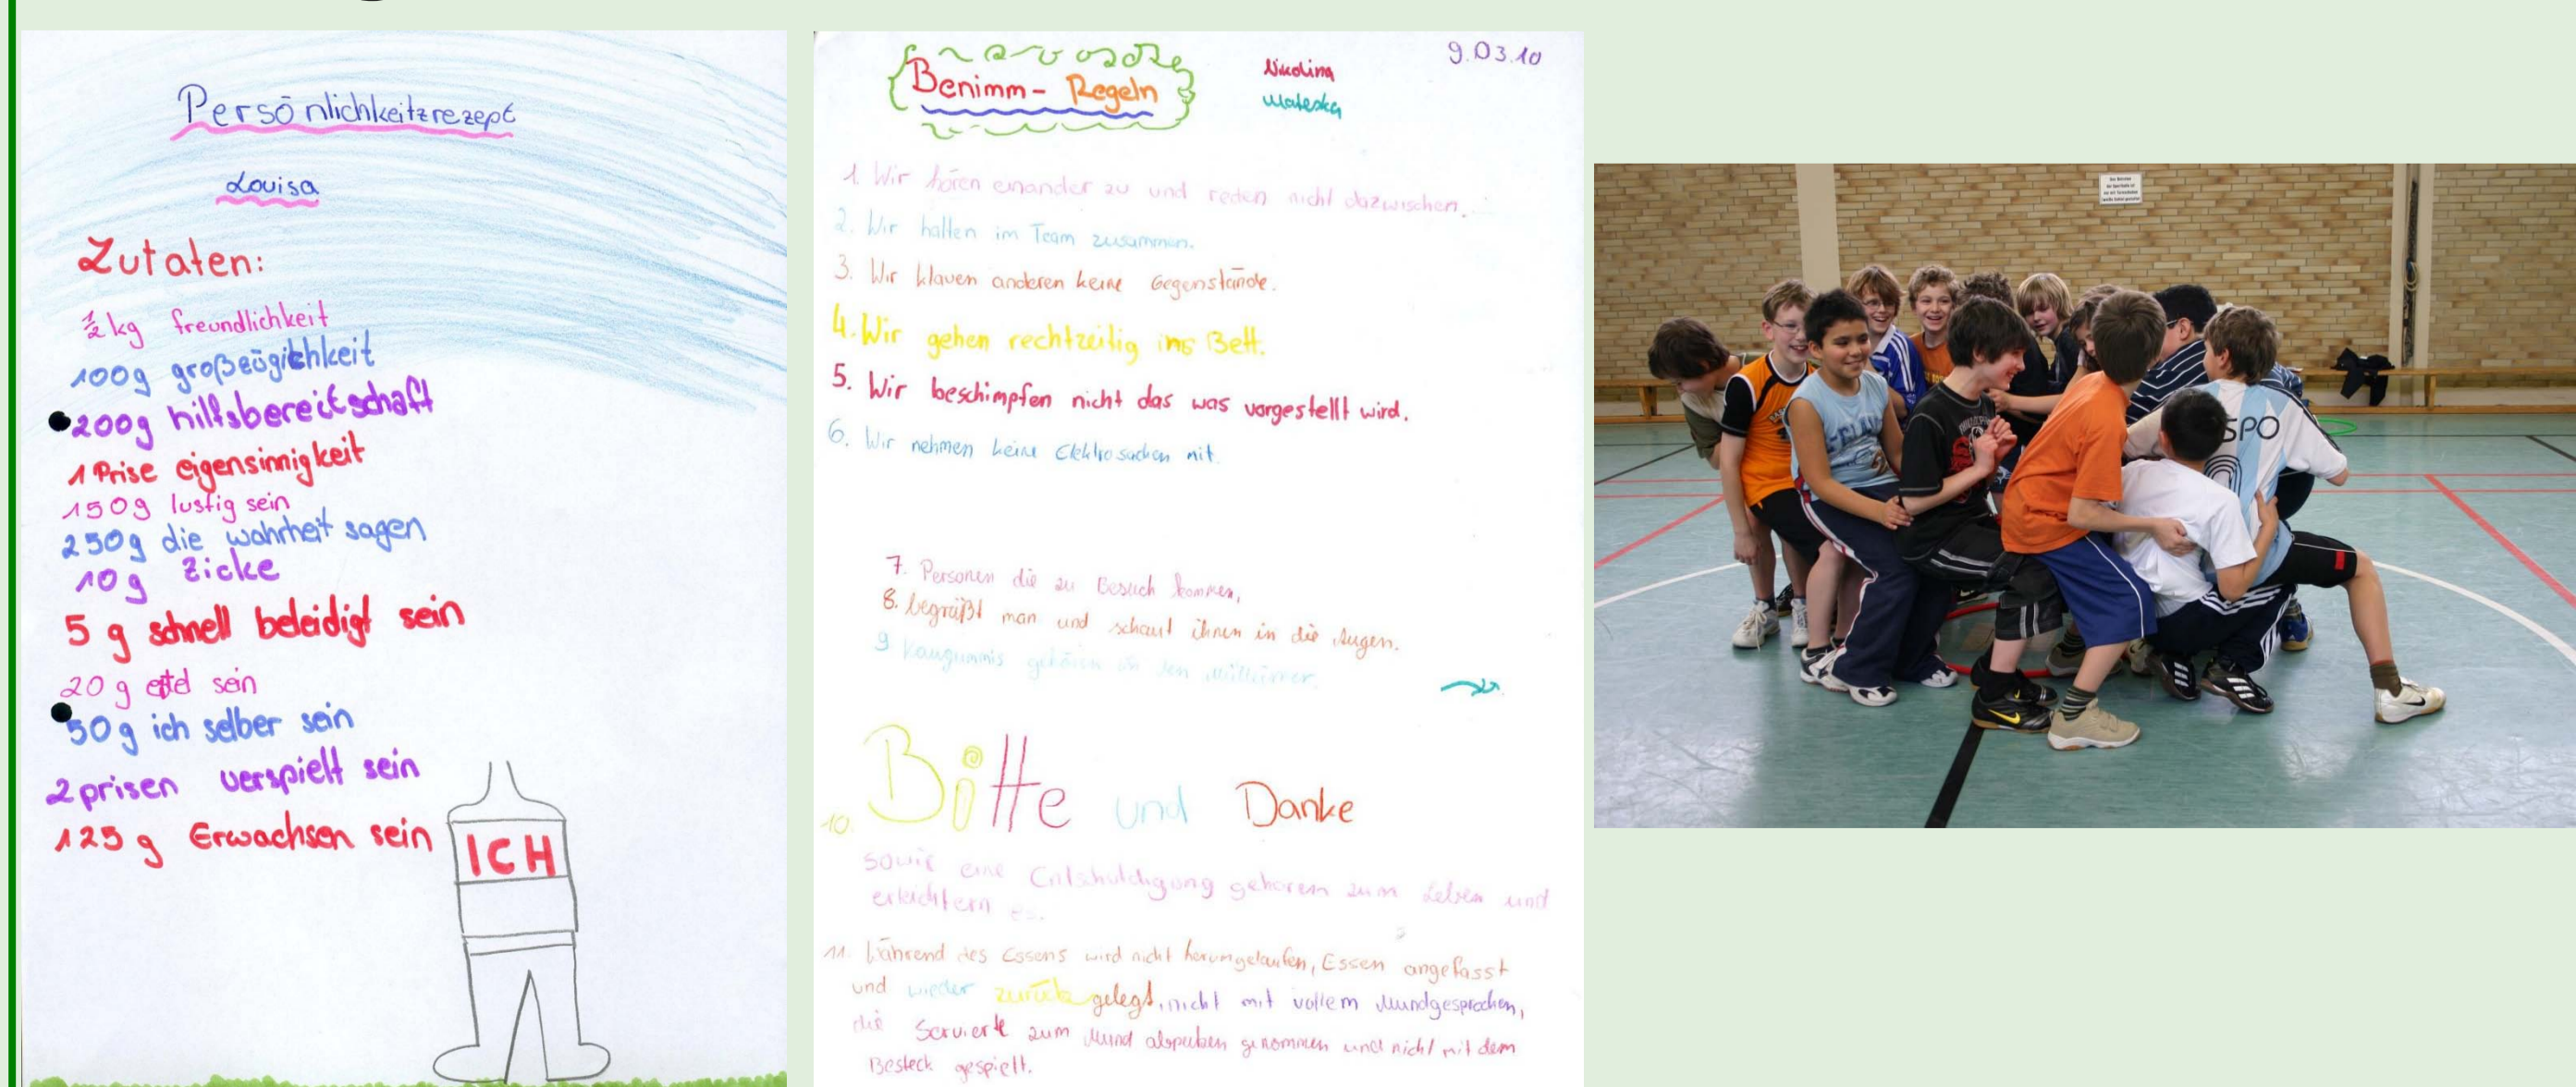 Persönlichkeitzrezept
Louisa
Zutaten:
½ kg freundlichkeit
100g großeügichkeit
200g hilfsbereitschaft
1 Prise eigensinnigkeit
150g lustig sein
250g die wahrheit sagen
10g Zicke
5 g schnell beleidigt sein
20 g eitel sein
50 g ich selber sein
2 prisen verspielt sein
125 g Erwachsen sein
ICH
Benimm- Regeln
Nicolina
9.03.10
1. Wir hören einander zu und reden nicht dazwischen.
2. Wir halten im Team zusammen.
3. Wir klauen anderen keine Gegenstände.
4. Wir gehen rechtzeitig ins Bett.
5. Wir beschimpfen nicht das was vorgestellt wird.
6. Wir nehmen keine Elektrosachen mit.
7. Personen die zu Besuch kommen,
8. begrüßt man und schaut ihnen in die Augen.
9 Kaugummis gehören in den Mülleimer.
10. Bitte und Danke
sowie eine Entschuldigung gehören zum Leben und
erleichtern es.
11. Während des Essens wird nicht herumgelaufen, Essen angefasst
und wieder zurück gelegt, nicht mit vollem Mundgesprochen,
die Servierte zum Mund abputzen genommen und nicht mit dem
Besteck gespielt.
SPO